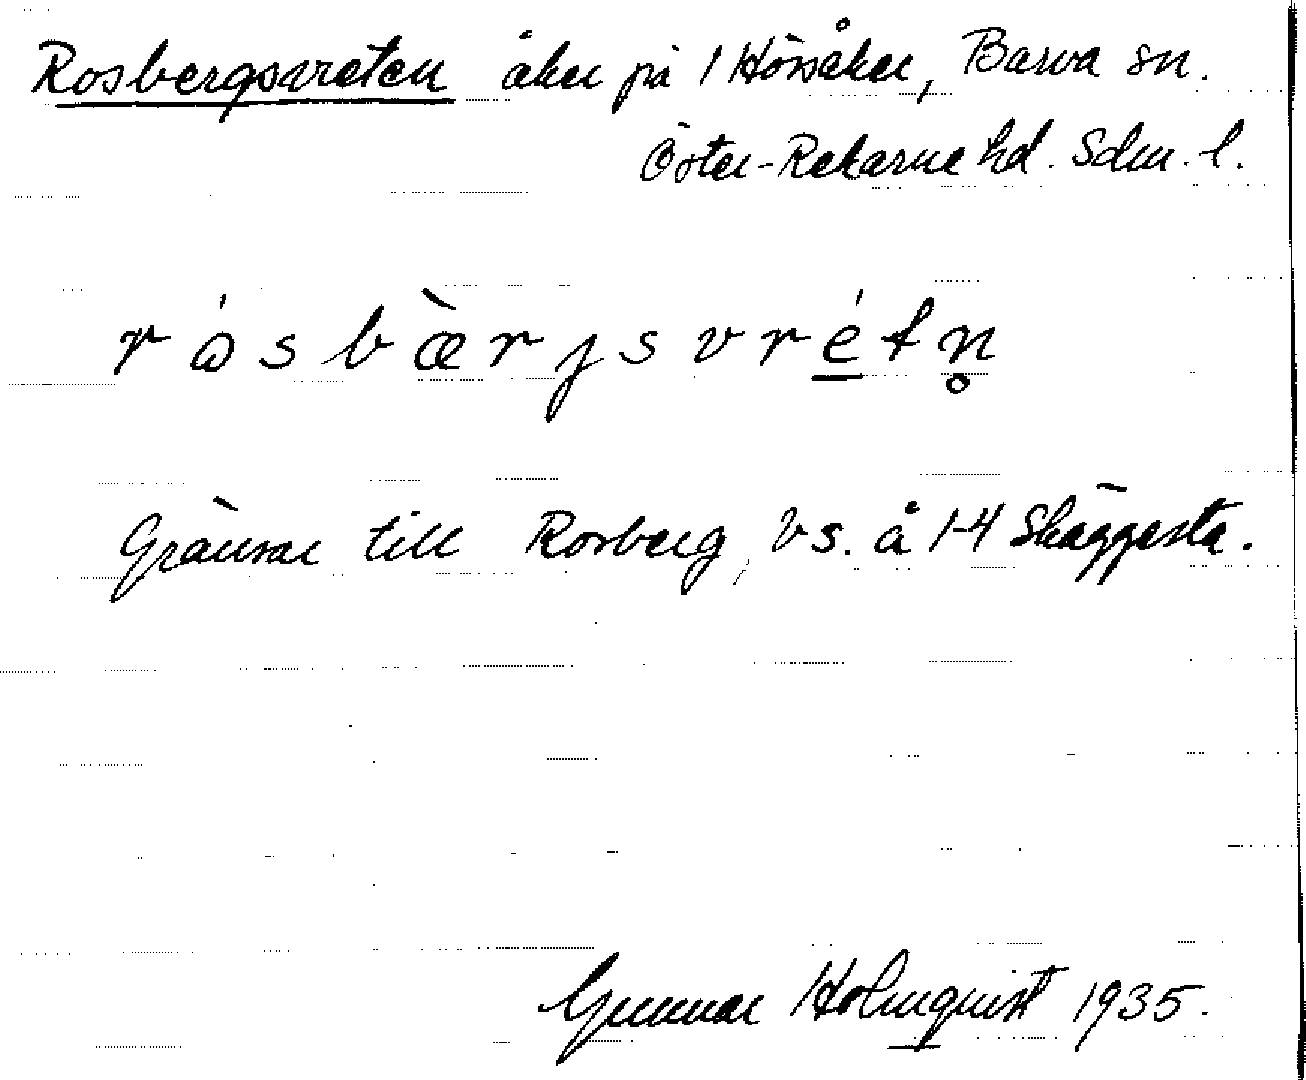 Rosbergsvreten åker på 1 Hörsåker, Barva sn.
Öster-Rekarne hd. Sdm. l.
rósbæ̀rjsvré̱tn̥
Gränsar till Rosberg, vs. å 1-4 Skäggesta.
Gunnar Holmquist 1935.